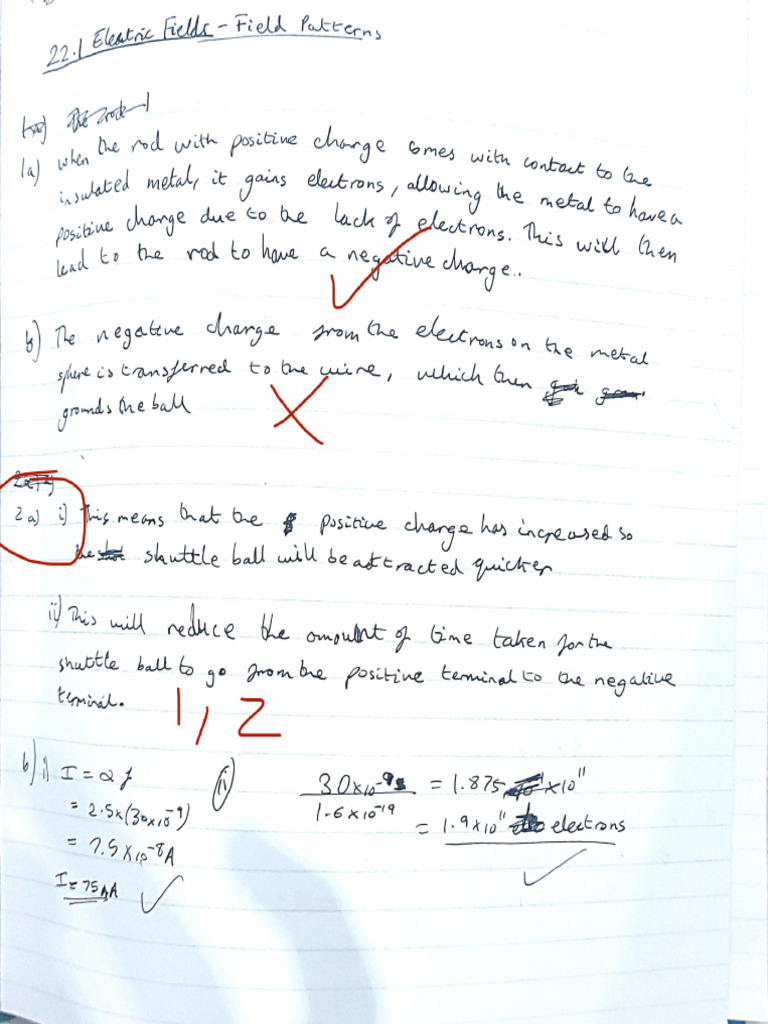 22.1 Electric Fields - Field Patterns
1a) when the rod with positive charge comes with contact to the
insulated metal, it gains electrons, allowing the metal to have a
positive charge due to the lack of electrons. This will then
lead to the rod to have a negative charge..
b) The negative charge from the electrons on the metal
sphere is transferred to the wire, which then
grounds the ball
2a) i) This means that the positive charge has increased so
the shuttle ball will be attracted quicker
ii) This will reduce the amount of time taken for the
shuttle ball to go from the positive terminal to the negative
terminal.
1, 2
b) i) I = Q f
= 2.5 x (30x10⁻⁹)
= 7.5 x 10⁻⁸ A
I = 75 nA
ii) 30x10⁻⁹ / 1.6x10⁻¹⁹ = 1.875 x10¹¹
= 1.9x10¹¹ electrons